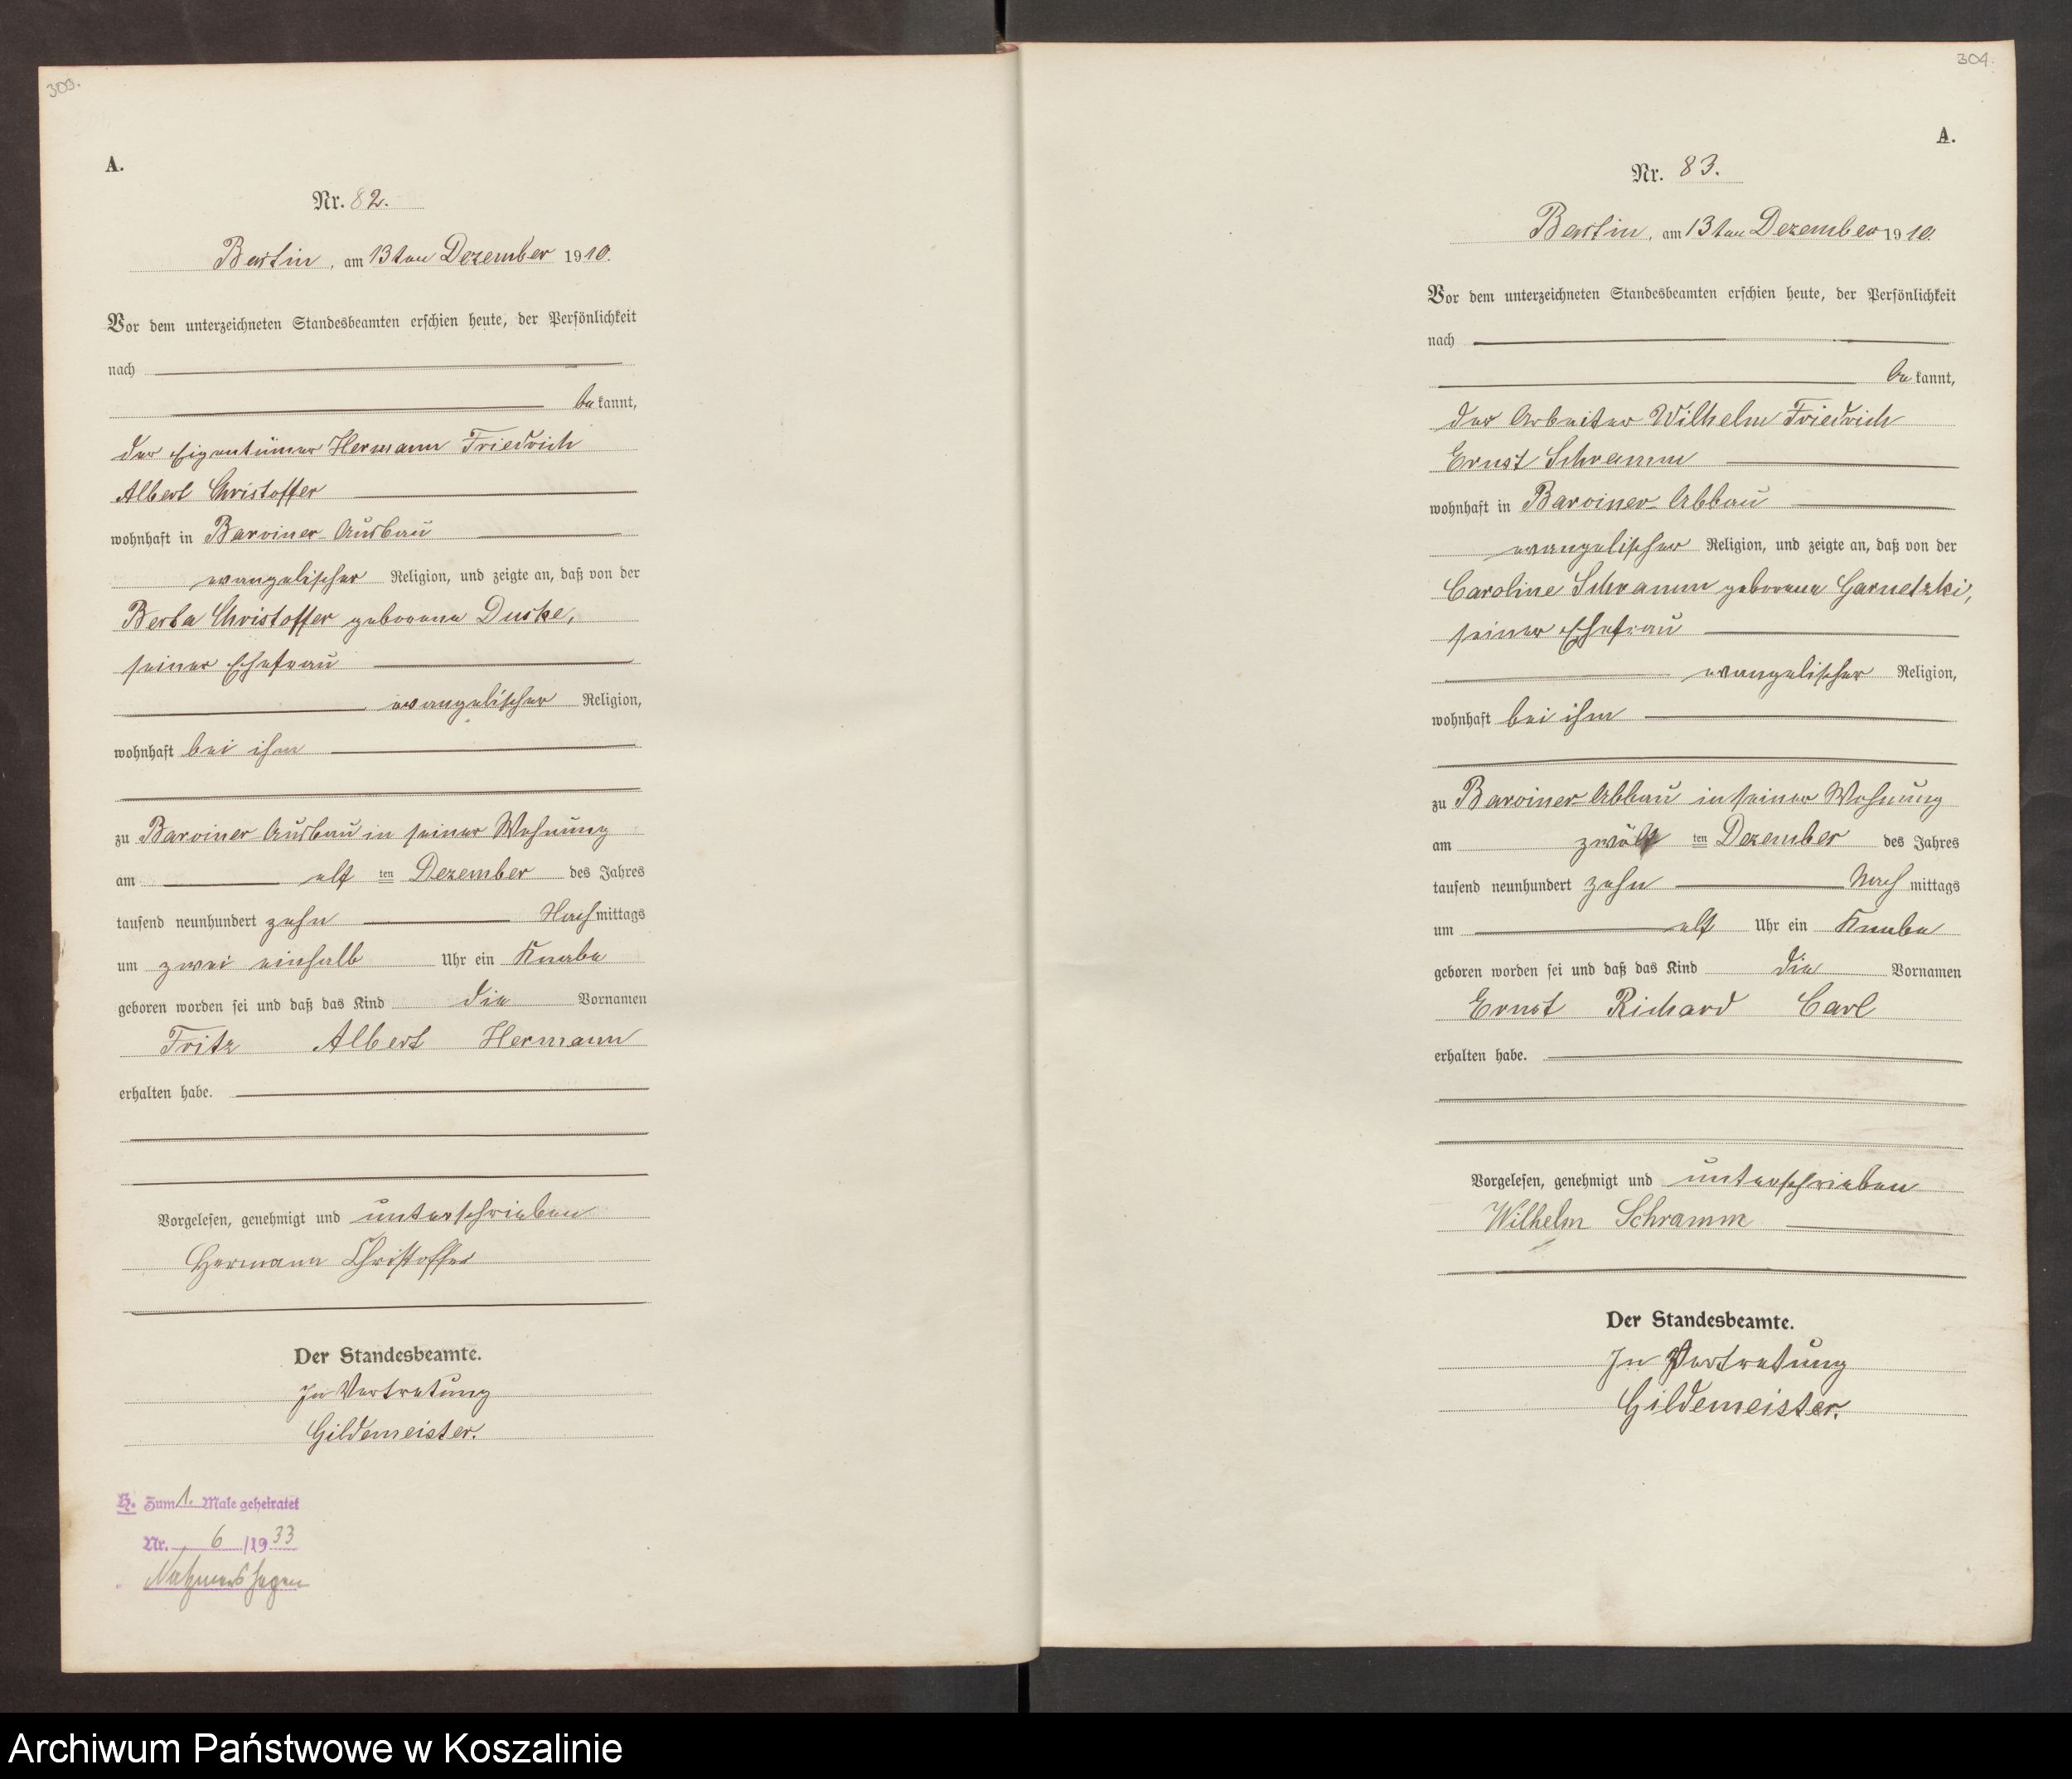 300.
A.
Nr. 82.
Bartin, am 13ten Dezember 1910.
Vor dem unterzeichneten Standesbeamten erschien heute, der Persönlichkeit
nach
bekannt,
der Eigentümer Hermann Friedrich
Albert Christoffer
wohnhaft in Barviner Ausbau
evangelischer Religion, und zeigte an, daß von der
Berta Christoffer geborene Duske,
seiner Ehefrau
evangelischer Religion,
wohnhaft bei ihm
zu Barviner Ausbau in seiner Wohnung
am elf ten Dezember des Jahres
tausend neunhundert zehn Nachmittags
um zwei einhalb Uhr ein Knabe
geboren worden sei und daß das Kind die Vornamen
Fritz Albert Hermann
erhalten habe.
Vorgelesen, genehmigt und unterschrieben
Hermann Christoffer
Der Standesbeamte.
In Vertretung
Gildemeister.
H. Zum 1. Male geheiratet
Nr. 6/1933
304.
A.
Nr. 83.
Bartin, am 13ten Dezember 1910.
Vor dem unterzeichneten Standesbeamten erschien heute, der Persönlichkeit
nach
bekannt,
der Arbeiter Wilhelm Friedrich
Ernst Schramm
wohnhaft in Barviner-Abbau
evangelischer Religion, und zeigte an, daß von der
Caroline Schramm geborene Garnetzki,
seiner Ehefrau
evangelischer Religion,
wohnhaft bei ihm
zu Barviner-Abbau in seiner Wohnung
am zwölf ten Dezember des Jahres
tausend neunhundert zehn Nachmittags
um elf Uhr ein Knabe
geboren worden sei und daß das Kind die Vornamen
Ernst Richard Carl
erhalten habe.
Vorgelesen, genehmigt und unterschrieben
Wilhelm Schramm
Der Standesbeamte.
In Vertretung
Gildemeister.
Archiwum Państwowe w Koszalinie